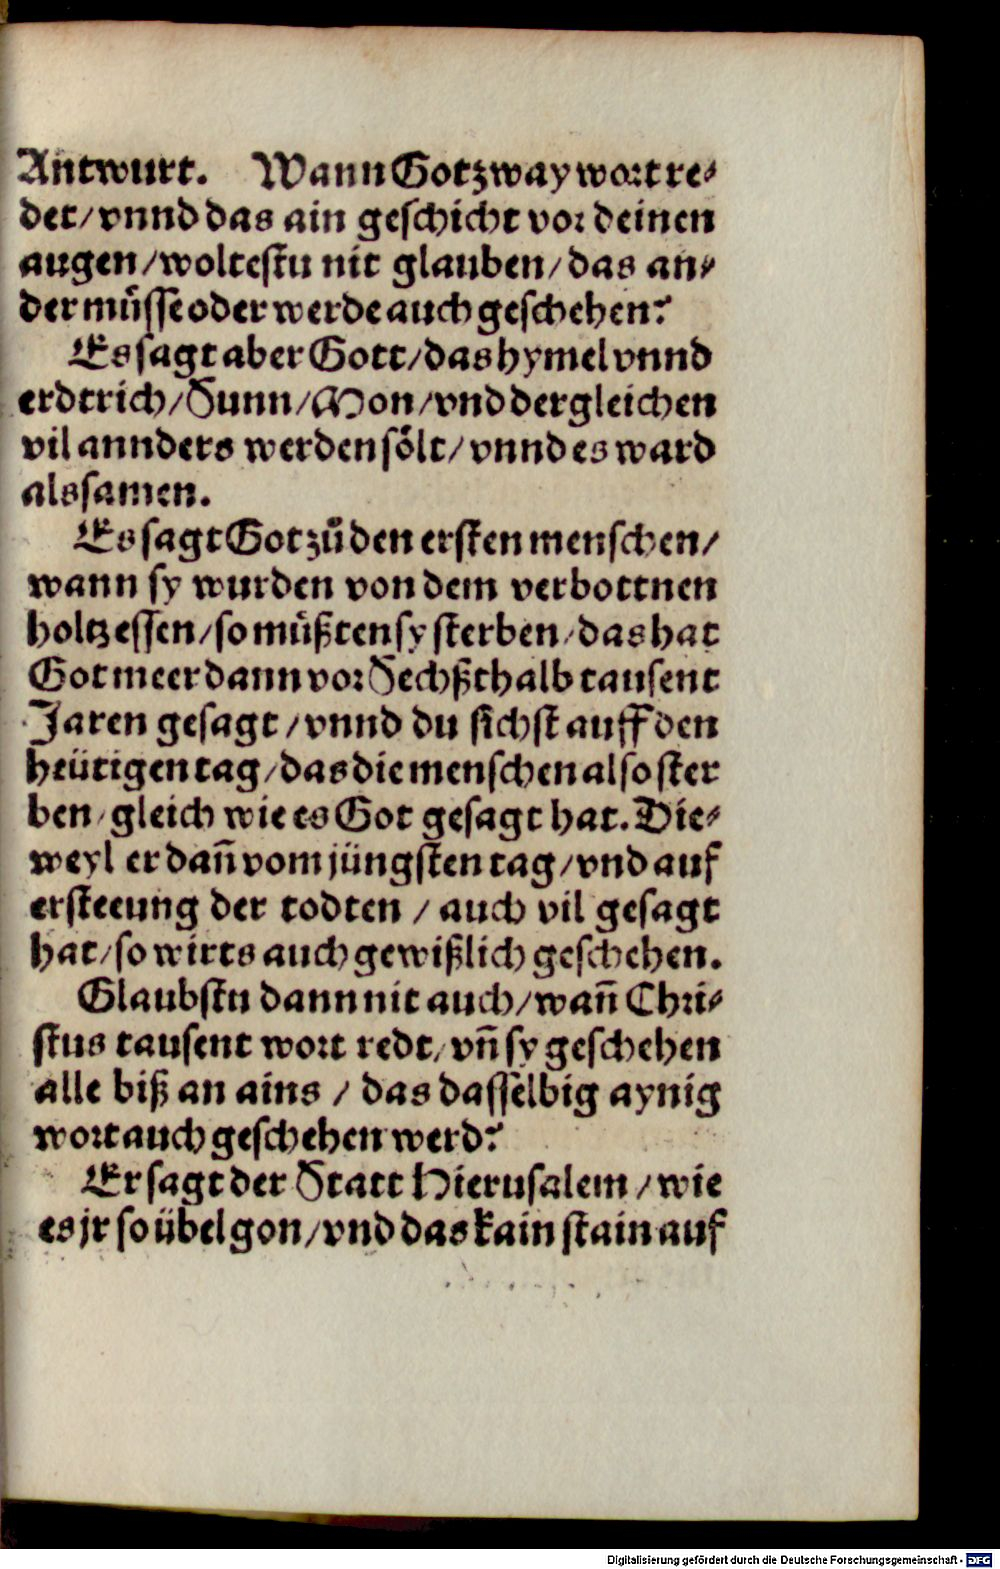 Antwurt. Wann Got zway wort re-
det/ vnnd das ain geschicht vor deinen
augen/ woltestu nit glauben/ das an-
der müsse oder werde auch geschehen?
Es sagt aber Gott/ das hymel vnnd
erdtrich/ Sunn/ Mon/ vnd dergleichen
vil annders werden sölt/ vnnd es ward
als samen.
Es sagt Got zů den ersten menschen/
wann sy wurden von dem verbottnen
holtz essen/ so müßten sy sterben/ das hat
Got meer dann vor Sechßthalb tausent
Jaren gesagt/ vnnd du sichst auff den
heütigen tag/ das die menschen also ster
ben/ gleich wie es Got gesagt hat. Die-
weyl er dañ vom jüngsten tag/ vnd auf
ersteeung der todten/ auch vil gesagt
hat/ so wirts auch gewißlich geschehen.
Glaubstu dann nit auch/ wañ Chri-
stus tausent wort redt/ vñ sy geschehen
alle biß an ains/ das dasselbig aynig
wort auch geschehen werd?
Er sagt der Statt Hierusalem/ wie
es jr so übel gon/ vnd das kain stain auf
Digitalisierung gefördert durch die Deutsche Forschungsgemeinschaft - DFG